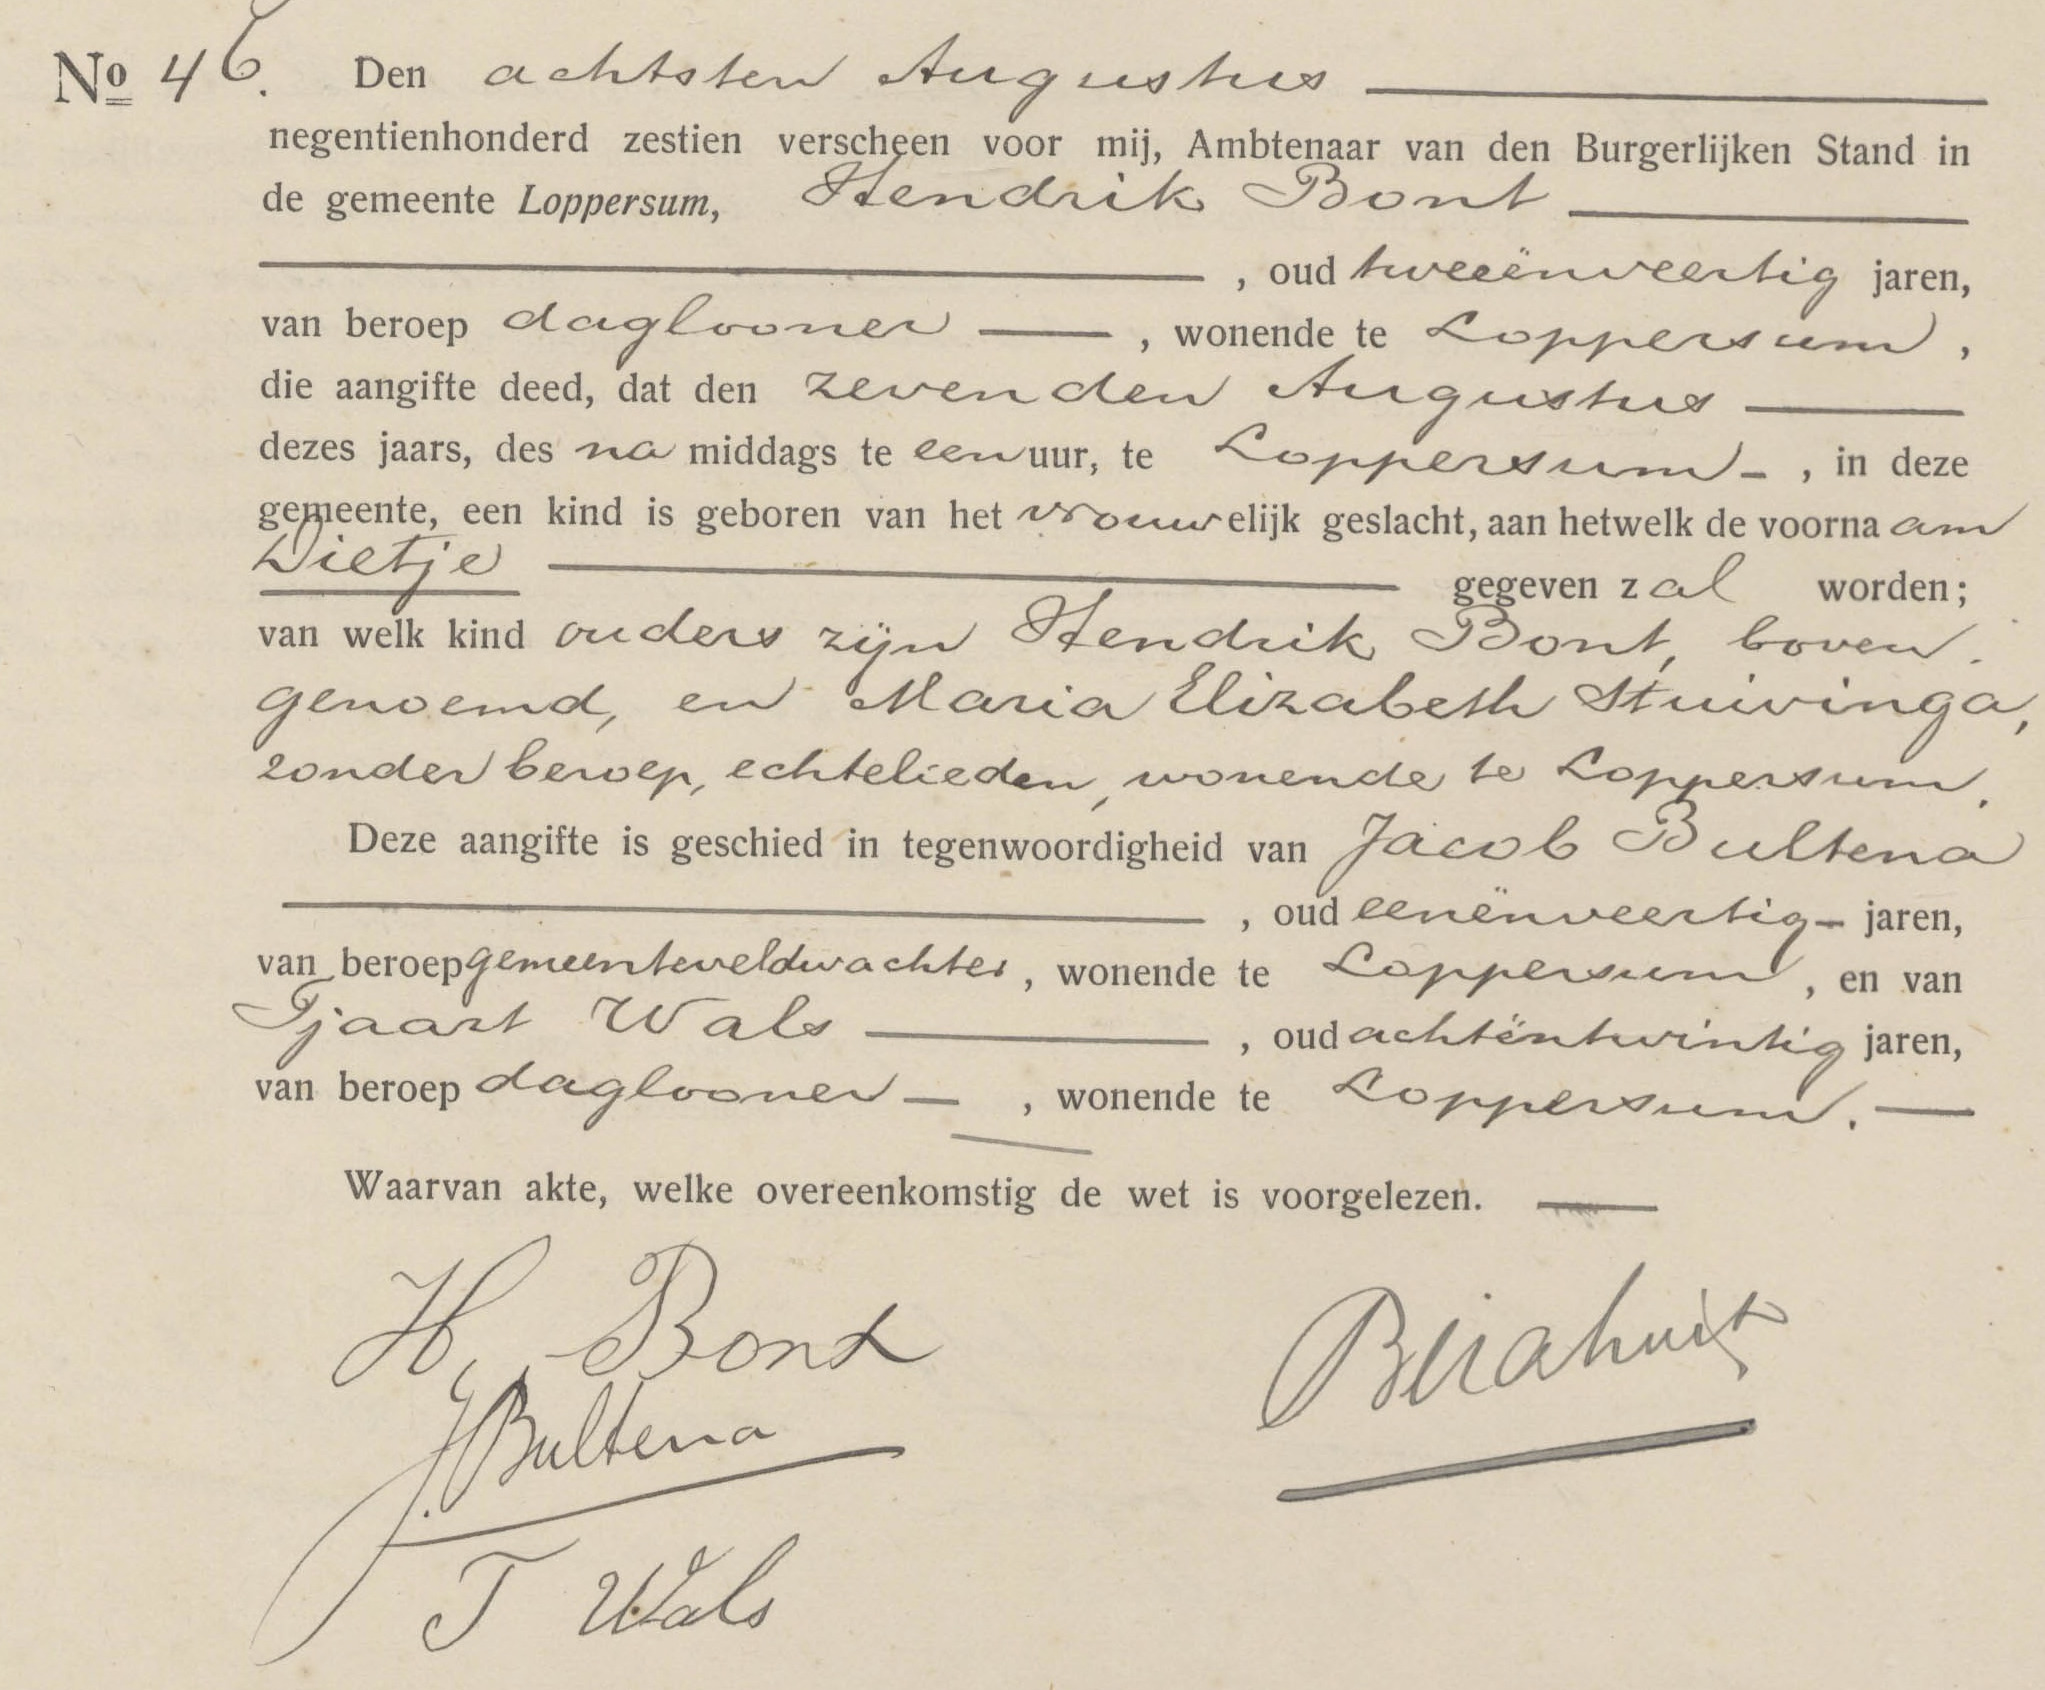 No 46. Den achtsten Augustus
negentienhonderd zestien verscheen voor mij, Ambtenaar van den Burgerlijken Stand in
de gemeente Loppersum, Hendrik Bont
, oud tweeënveertig jaren,
van beroep daglooner , wonende te Loppersum ,
die aangifte deed, dat den zevenden Augustus
dezes jaars, des na middags te een uur, te Loppersum - , in deze
gemeente, een kind is geboren van het vrouwelijk geslacht, aan hetwelk de voornaam
Dietje gegeven zal worden;
van welk kind ouders zijn Hendrik Bont, boven.
genoemd, en Maria Elizabeth Stuivinga,
zonder beroep, echtelieden, wonende te Loppersum.
Deze aangifte is geschied in tegenwoordigheid van Jacob Bultena
, oud eenënveertig jaren,
van beroep gemeenteveldwachter, wonende te Loppersum , en van
Tjaart Wals , oud achtëntwintig jaren,
van beroep daglooner , wonende te Loppersum.
Waarvan akte, welke overeenkomstig de wet is voorgelezen.
H. Bont
JBultena
T Wals